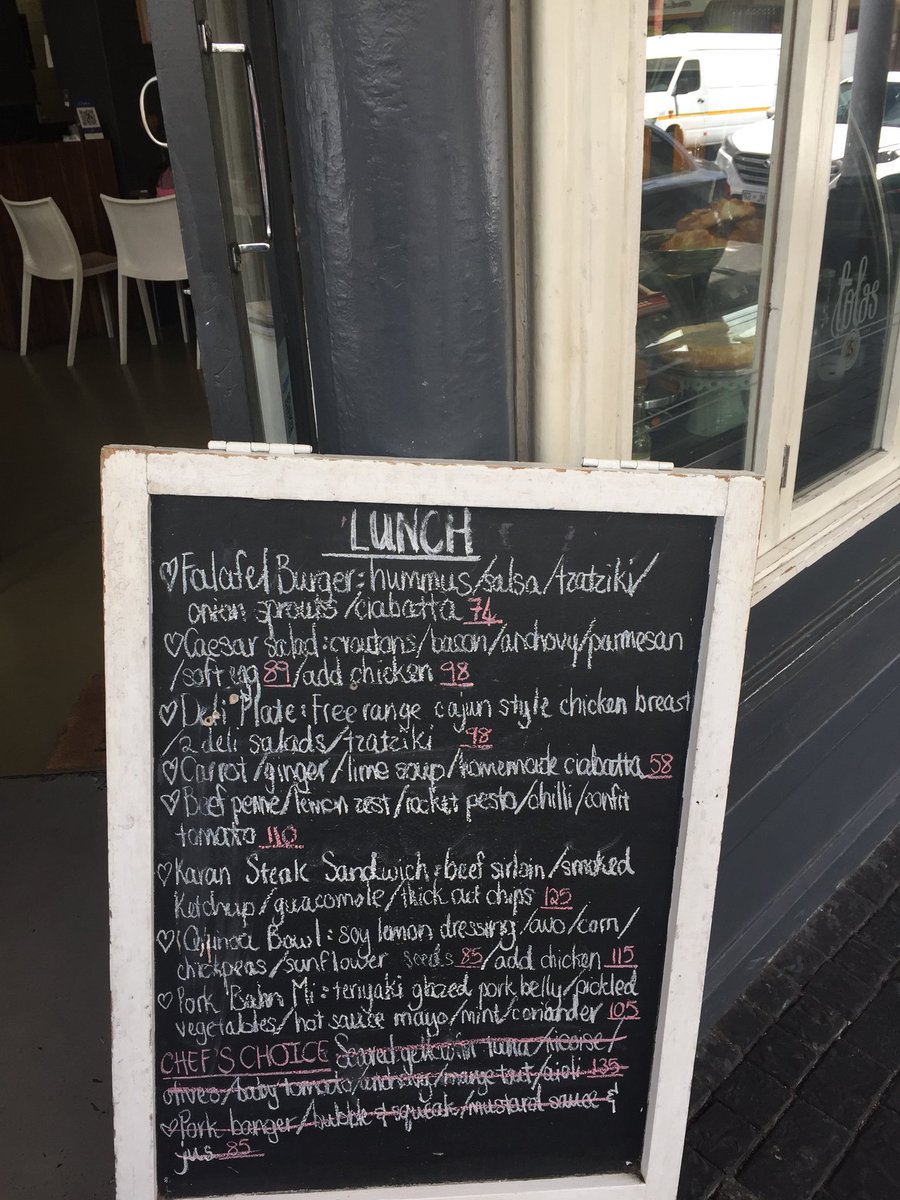 tolos
LUNCH
♡Falafel Burger: hummus/salsa/tzatziki/
onion sprouts/ciabatta 74
♡Caesar salad: croutons/bacon/anchovy/parmesan
/soft egg 89/add chicken 98
♡Deli Plate: Free range cajun style chicken breast
/2 deli salads/tzatziki 98
♡Carrot/ginger/lime soup/homemade ciabatta 58
♡Beef penne/lemon zest/rocket pesto/chilli/confit
tomato 110
♡Karan Steak Sandwich: beef sirloin/smoked
Ketchup/guacamole/thick cut chips 125
♡Quinoa Bowl: soy lemon dressing/avo/corn/
chickpeas/sunflower seeds 85/add chicken 115
♡Pork Bahn Mi: teriyaki glazed pork belly/pickled
vegetables/hot sauce mayo/mint/coriander 105
CHEF'S CHOICE Seared yellowfin tuna/nicoise/
olives/baby tomato/anchovy/mange tout/aioli 135
♡Pork banger/bubble & squeak/mustard sauce &
jus 85